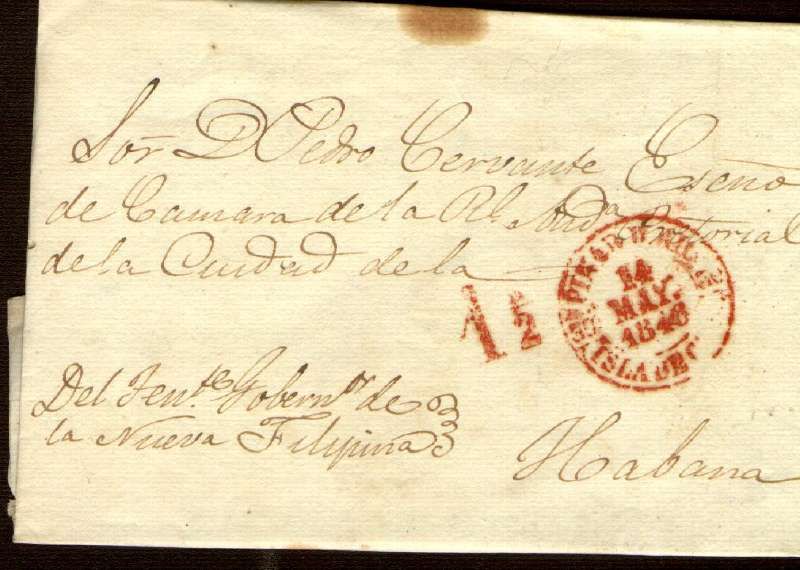 Sor D Pedro Cervante Escño
de Camara de la Rl. Auda. Pretorial
de la Ciudad de la
1 1/2
14
MAY.
1846
ISLA DE C
Del Tente. Gobernor. de
la Nueva Filipina
Habana